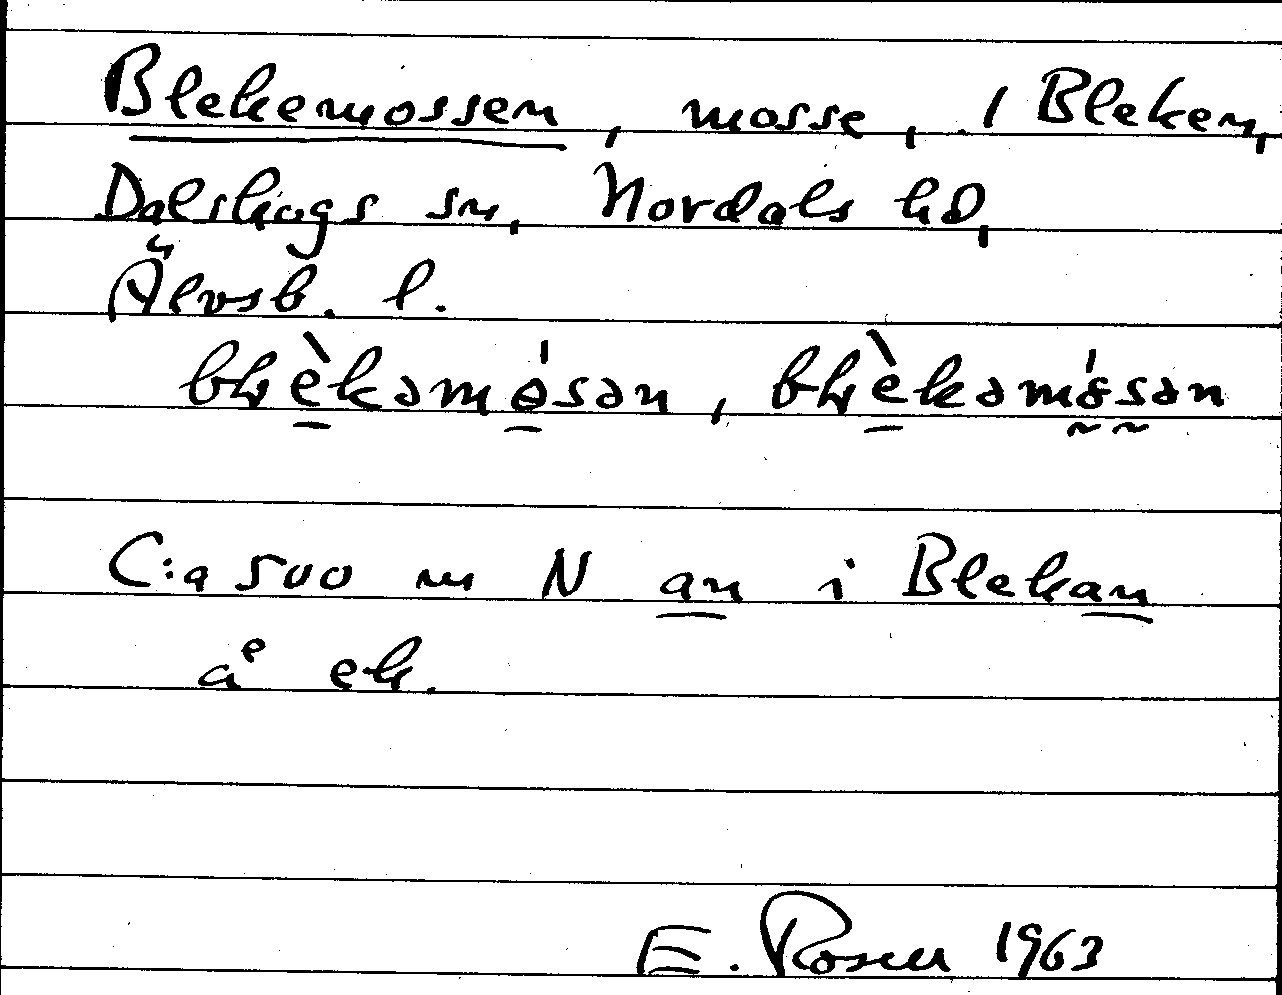 Blekemossen, mosse, i Bleken,
Dalskogs sn, Nordals hd,
Älvsb. l.
blèkəmósən, blèkəmósən
C:a 500 m N an i Blekan
å ek.
E. Rosell 1963